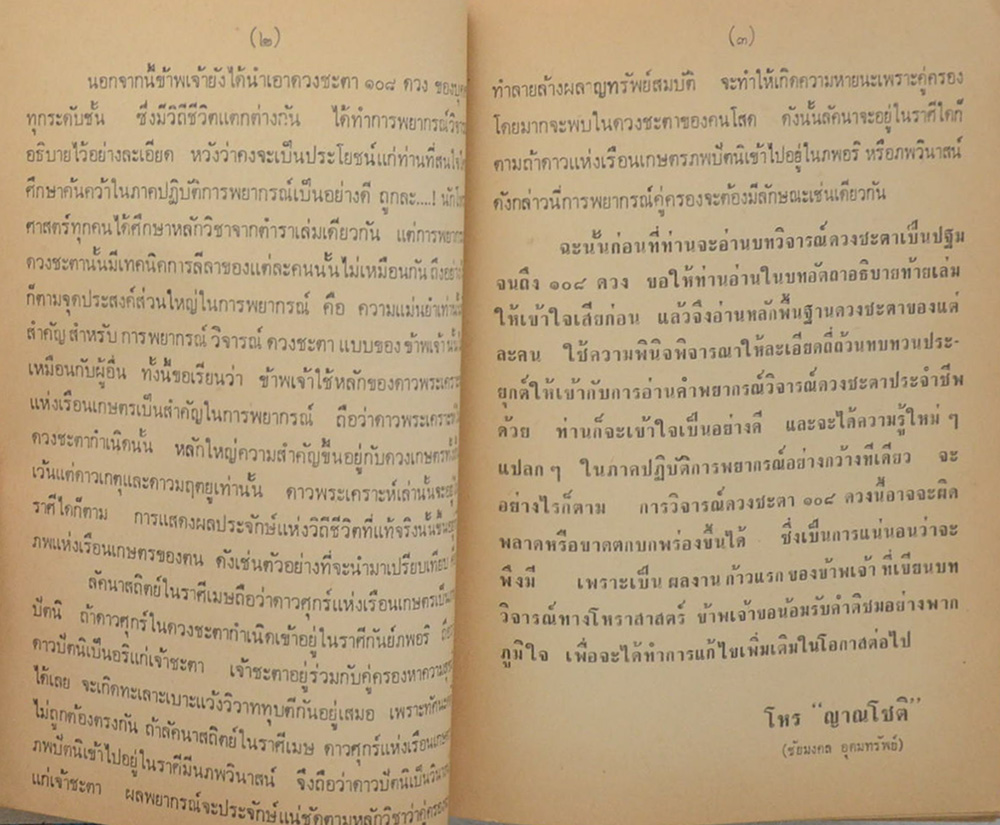 (๒)
นอกจากนี้ข้าพเจ้ายังได้นำเอาดวงชะตา ๑๐๘ ดวง ของบุค
ทุกระดับชั้น ซึ่งมีวิถีชีวิตแตกต่างกัน ได้ทำการพยากรณ์วิจาร
อธิบายไว้อย่างละเอียด หวังว่าคงจะเป็นประโยชน์แก่ท่านที่สนใจใ
ศึกษาค้นคว้าในภาคปฏิบัติการพยากรณ์เป็นอย่างดี ถูกละ....! นักโห
ศาสตร์ทุกคนได้ศึกษาหลักวิชาจากตำราเล่มเดียวกัน แต่การพยากร
ดวงชะตานั้นมีเทคนิคการลีลาของแต่ละคนนั้นไม่เหมือนกัน ถึงอย่าง
ก็ตามจุดประสงค์ส่วนใหญ่ในการพยากรณ์ คือ ความแม่นยำเท่านั้น
สำคัญ สำหรับ การพยากรณ์ วิจารณ์ ดวงชะตา แบบของ ข้าพเจ้า นั้น
เหมือนกับผู้อื่น ทั้งนี้ขอเรียนว่า ข้าพเจ้าใช้หลักของดาวพระเครา
แห่งเรือนเกษตรเป็นสำคัญในการพยากรณ์ ถือว่าดาวพระเคราะ
ดวงชะตากำเนิดนั้น หลักใหญ่ความสำคัญขึ้นอยู่กับดวงเกษตร
เว้นแต่ดาวเกตุและดาวมฤตยูเท่านั้น ดาวพระเคราะห์เล่านั้นจะอยู่
ราศีใดก็ตาม การแสดงผลประจักษ์แห่งวิถีชีวิตที่แท้จริงนั้นขึ้นอยู่
ภพแห่งเรือนเกษตรของตน ดังเช่นตัวอย่างที่จะนำมาเปรียบเทียบ
ลัคนาสถิตย์ในราศีเมษถือว่าดาวศุกร์แห่งเรือนเกษตรเป็น
ปัตนิ ถ้าดาวศุกร์ในดวงชะตากำเนิดเข้าอยู่ในราศีกันย์ภพอริ
ดาวปัตนิเป็นอริแก่เจ้าชะตา เจ้าชะตาอยู่ร่วมกับคู่ครองหาความ
ได้เลย จะเกิดทะเลาะเบาะแว้งวิวาททุบตีกันอยู่เสมอ เพราะทัศนะ
ไม่ถูกต้องตรงกัน ถ้าลัคนาสถิตย์ในราศีเมษ ดาวศุกร์แห่งเรือนเกษ
ภพปัตนิเข้าไปอยู่ในราศีมีนภพวินาสน์ จึงถือว่าดาวปัตนิเป็นวินา
แก่เจ้าชะตา ผลพยากรณ์จะประจักษ์แน่ชัดตามหลักวิชาว่าคู่ครอง
(๓)
ทำลายล้างผลาญทรัพย์สมบัติ จะทำให้เกิดความหายนะเพราะคู่ครอง
โดยมากจะพบในดวงชะตาของคนโสด ดังนั้นลัคนาจะอยู่ในราศีใดก็
ตามถ้าดาวแห่งเรือนเกษตรภพปัตนิเข้าไปอยู่ในภพอริ หรือภพวินาสน์
ดังกล่าวนี่การพยากรณ์คู่ครองจะต้องมีลักษณะเช่นเดียวกัน
ฉะนั้นก่อนที่ท่านจะอ่านบทวิจารณ์ดวงชะตาเป็นปฐม
จนถึง ๑๐๘ ดวง ขอให้ท่านอ่านในบทอัตถาอธิบายท้ายเล่ม
ให้เข้าใจเสียก่อน แล้วจึงอ่านหลักพื้นฐานดวงชะตาของแต่
ละคน ใช้ความพินิจพิจารณาให้ละเอียดถี่ถ้วนทบทวนประ-
ยุกต์ให้เข้ากับการอ่านคำพยากรณ์วิจารณ์ดวงชะตาประจำชีพ
ด้วย ท่านก็จะเข้าใจเป็นอย่างดี และจะได้ความรู้ใหม่ ๆ
แปลก ๆ ในภาคปฏิบัติการพยากรณ์อย่างกว้างทีเดียว จะ
อย่างไรก็ตาม การวิจารณ์ดวงชะตา ๑๐๘ ดวงนี้อาจจะผิด
พลาดหรือขาดตกบกพร่องขึ้นได้ ซึ่งเป็นการแน่นอนว่าจะ
พึงมี เพราะเป็น ผลงาน ก้าวแรก ของข้าพเจ้า ที่เขียนบท
วิจารณ์ทางโหราสาสตร์ ข้าพเจ้าขอน้อมรับคำติชมอย่างพาก
ภูมิใจ เพื่อจะได้ทำการแก้ไขเพิ่มเติมในโอกาสต่อไป
โหร "ญาณโชติ"
(ชัยมงคล อุดมทรัพย์)